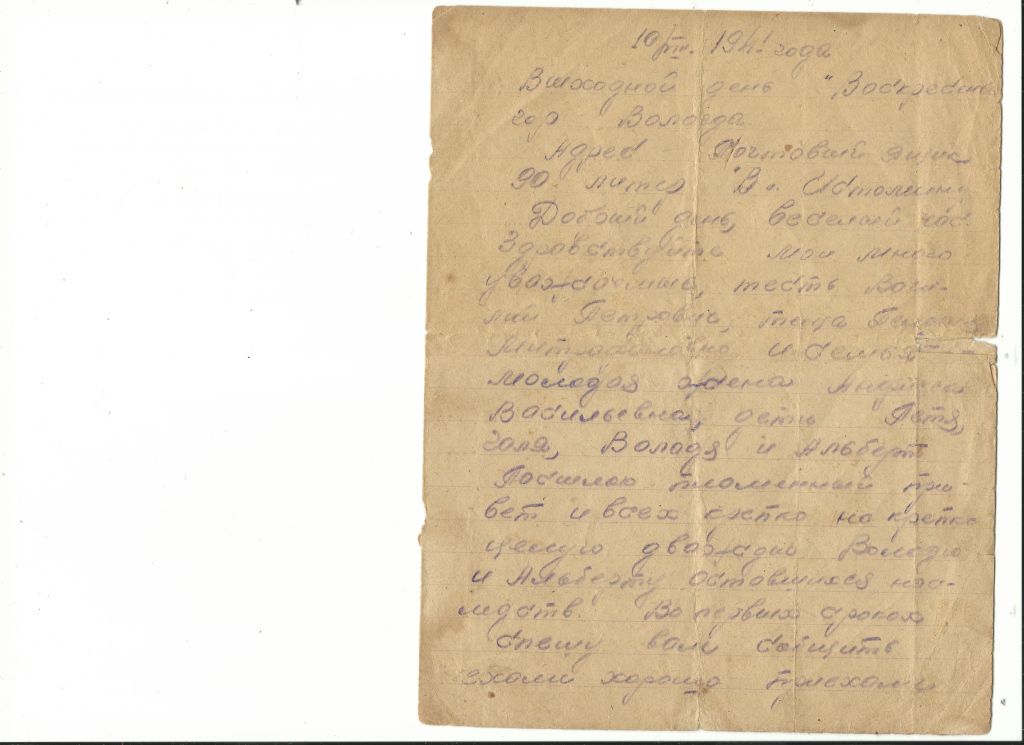 10/VIII. 1941 года
Выходной день "Воскресень
гор Вологда
Адрес Почтовый ящик
90. литер "В".
Добрый день, веселый час.
Здравствуйте мои много
уважаемые, тесть Васи-
лий Петрович, теща
Митрофановна и семья
молодая жена
Васильевна, дети Петя,
Галя, Володя и Альберт
Посылаю пламенный при-
вет и всех крепко на крепко
целую дважды Володю
и Альберту оставшихся нас-
ледств. Во первых строках
спешу вам сообщить
ехали хорошо приехали